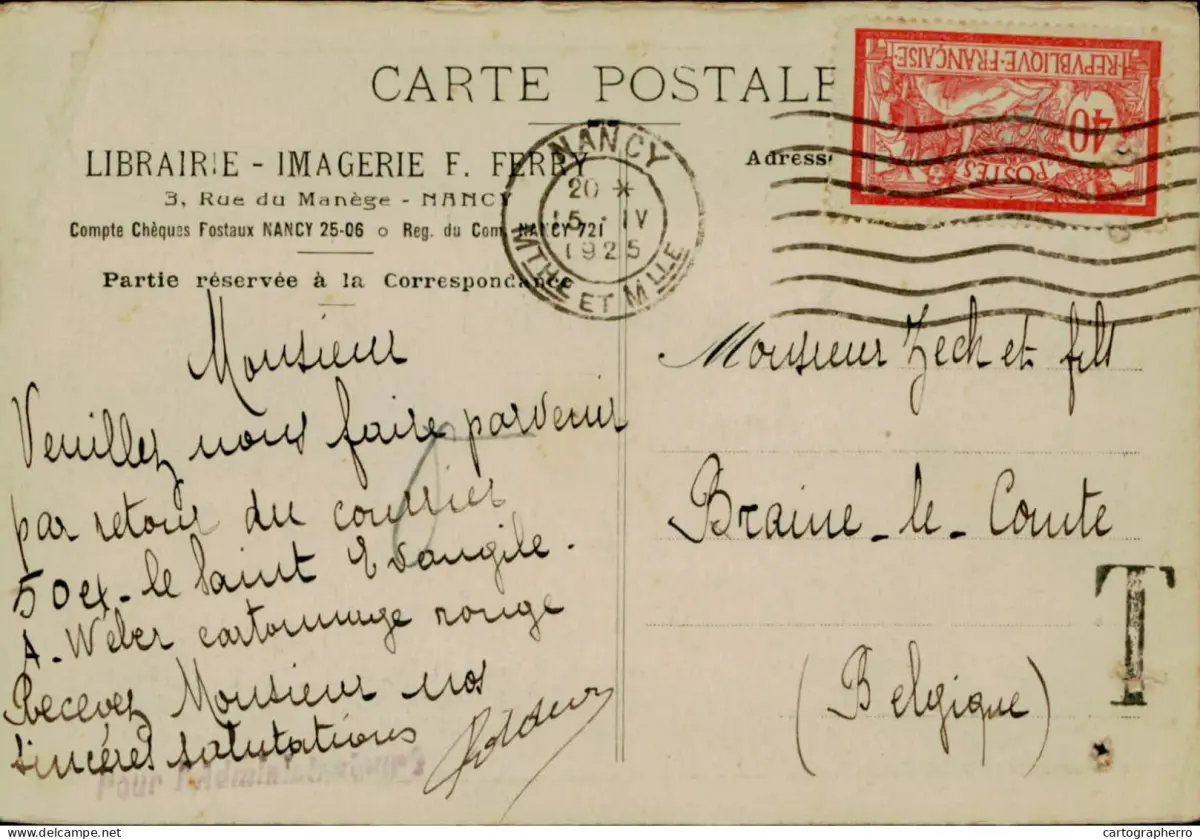 CARTE POSTALE
LIBRAIRIE - IMAGERIE F. FERRY
3, Rue du Manège - NANCY
Compte Chèques Postaux NANCY 25-06 o Reg. du Com. NANCY 721
Partie réservée à la Correspondance
Adresse
REPVBLIQVE·FRANÇAISE
40
POSTES
NANCY
20 *
15 - IV
1925
MTHE ET MLLE
Monsieur
Veuillez nous faire parvenir
par retour du courrier
50 ex - le Saint Evangile.
A. Weber cartonnage rouge
Recevez Monsieur nos
sincères salutations
Pour l'Administrateur
Monsieur Zech et fils
Braine-le-Comte
(Belgique)
T
delcampe.net
cartographerro